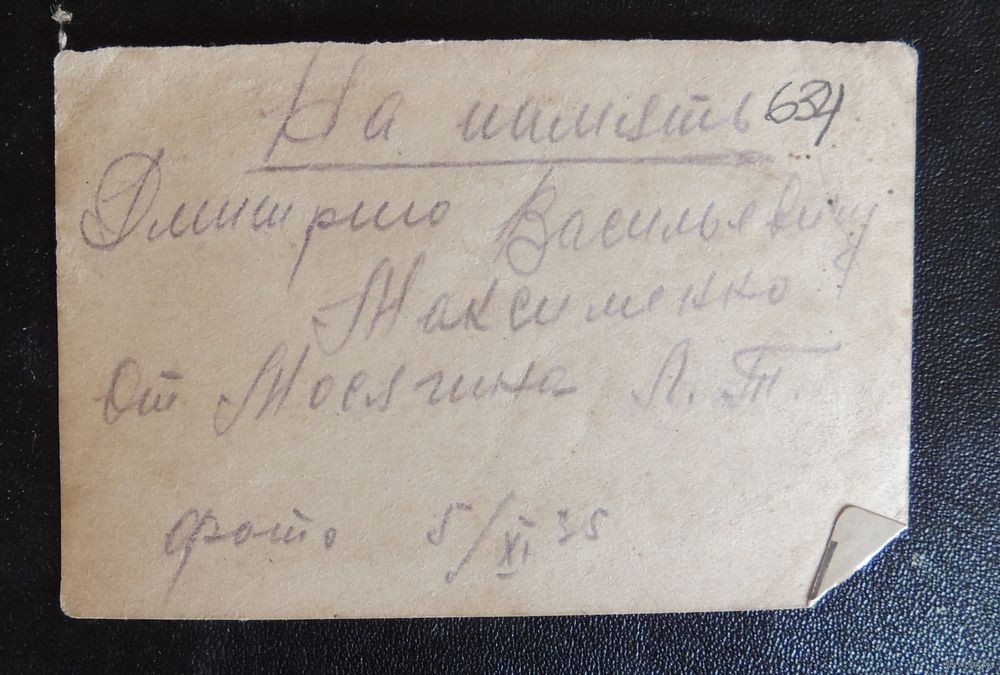 На память 634
Дмитрию Васильевичу
Максименко
от Мосягина Л. Т.
фото 5/XI 35